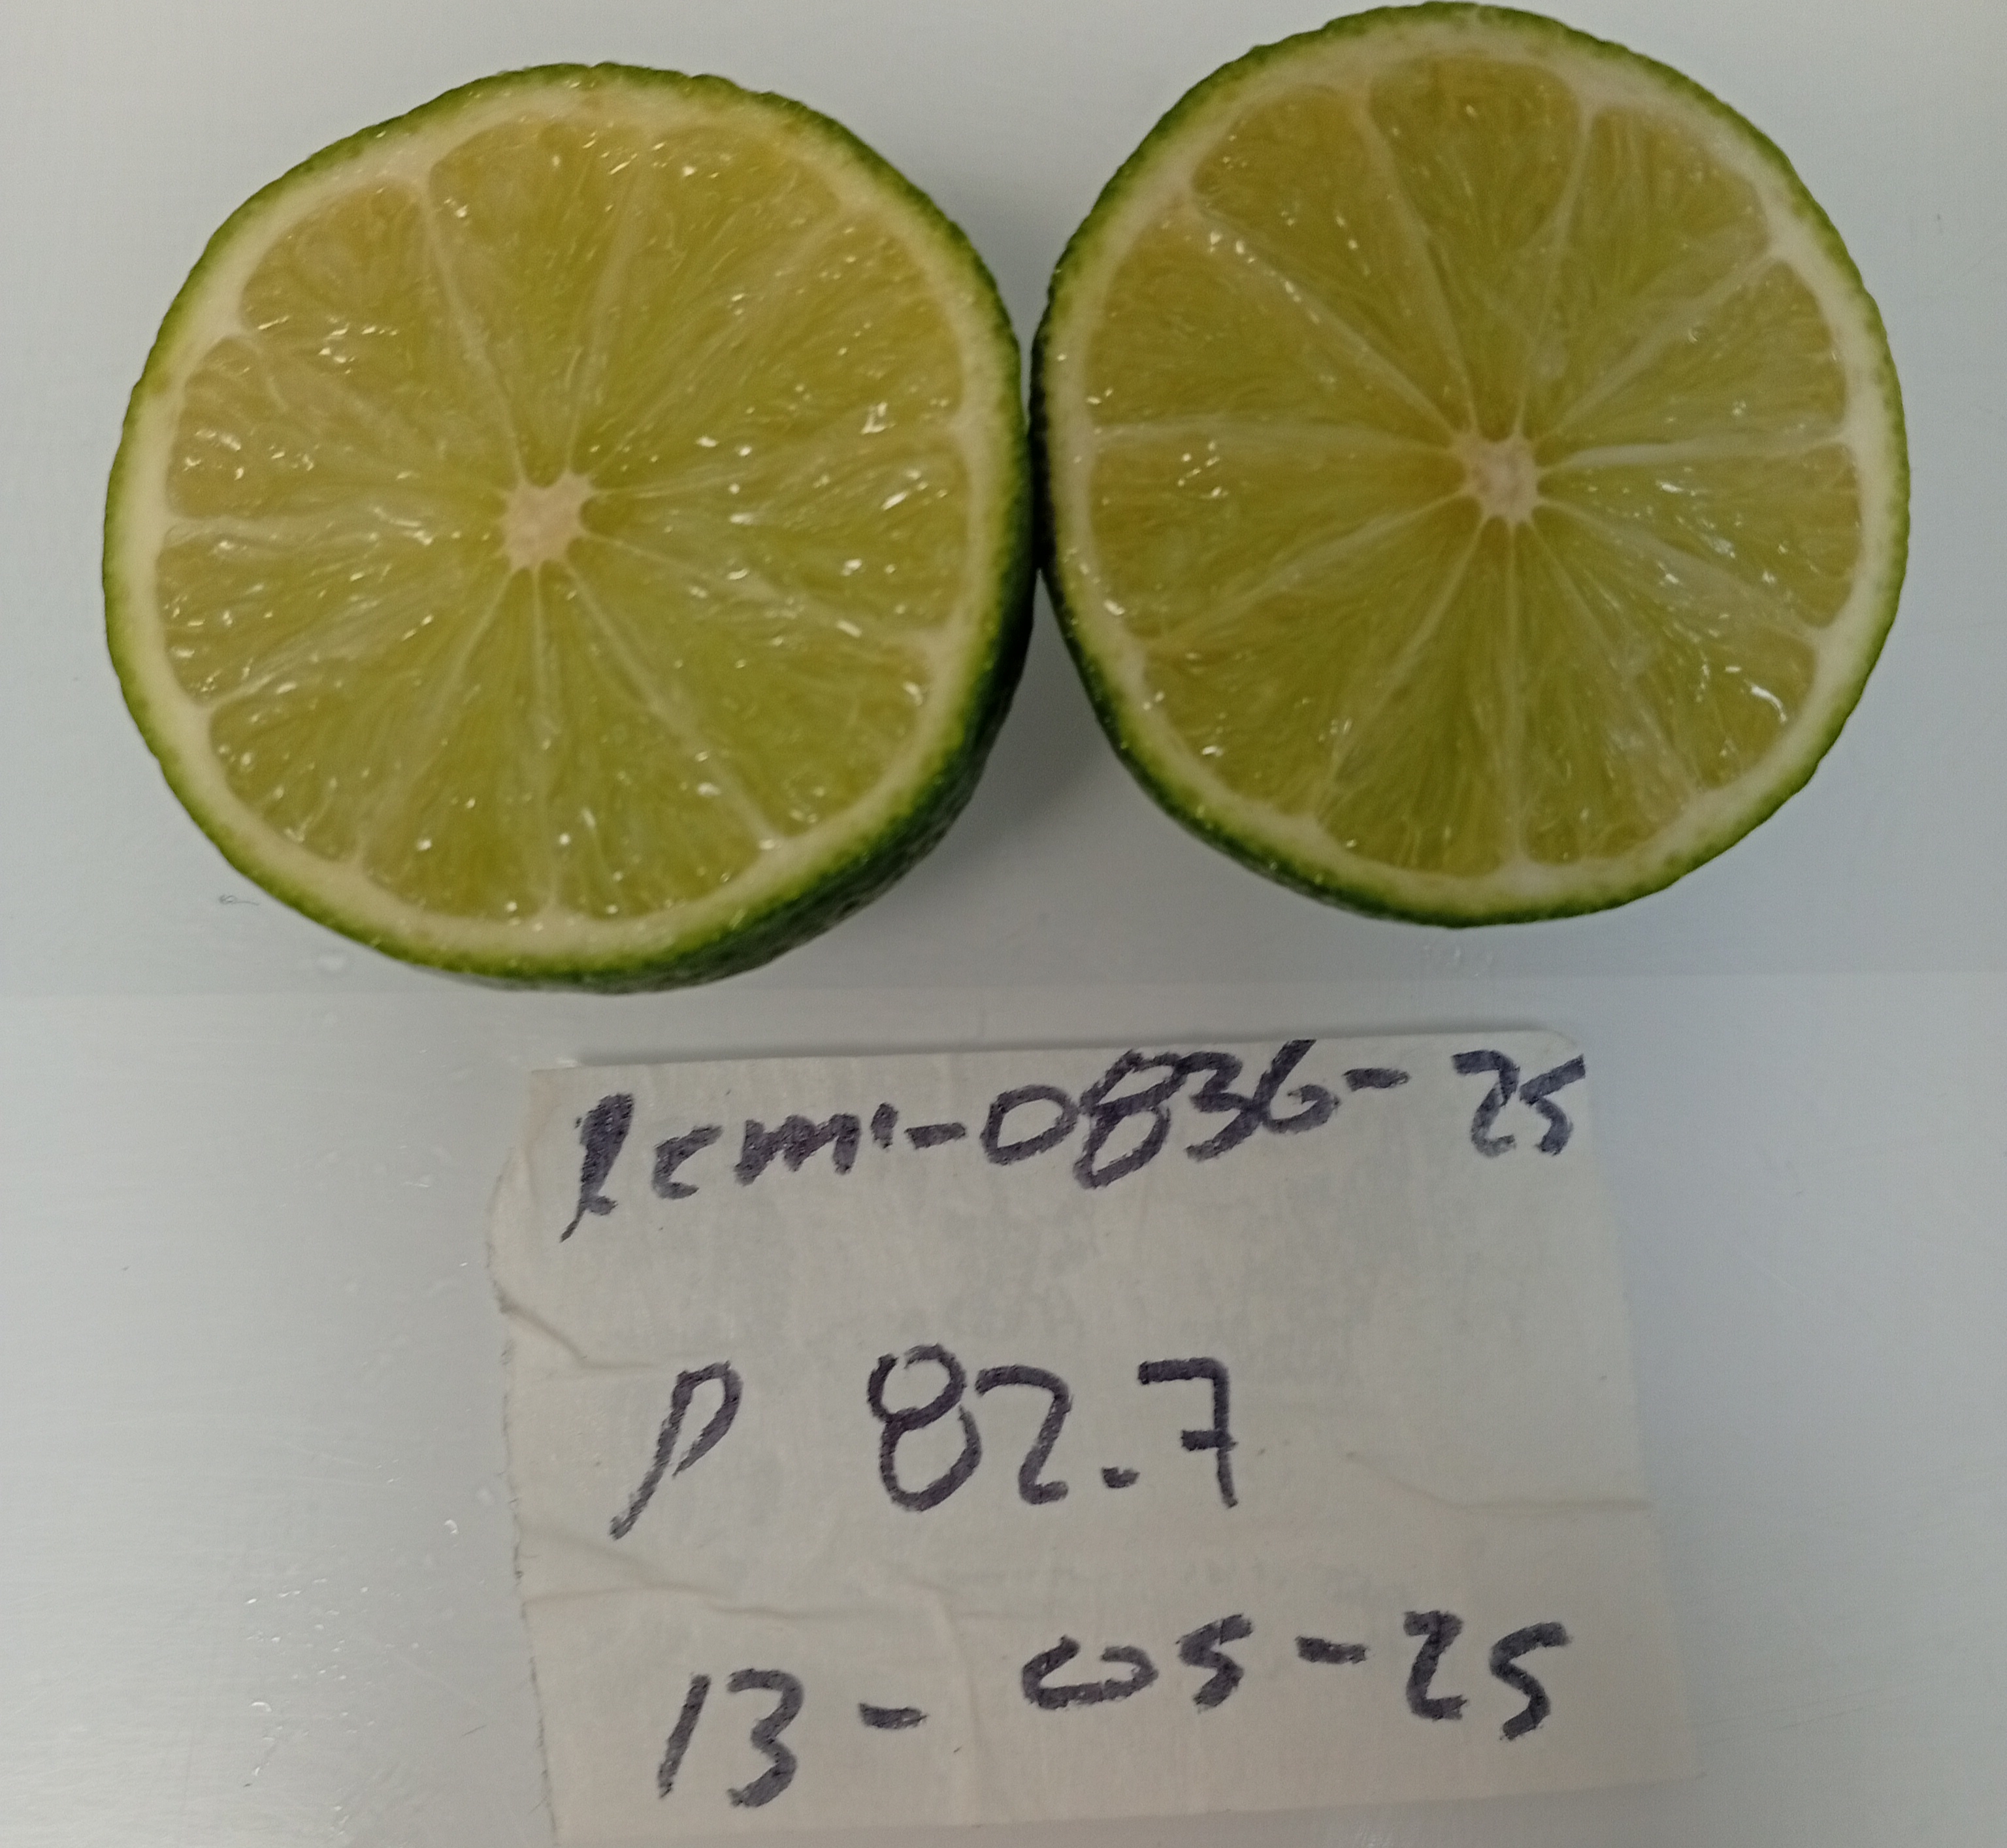 Rcmi-0836-25
P 82.7
13-05-25